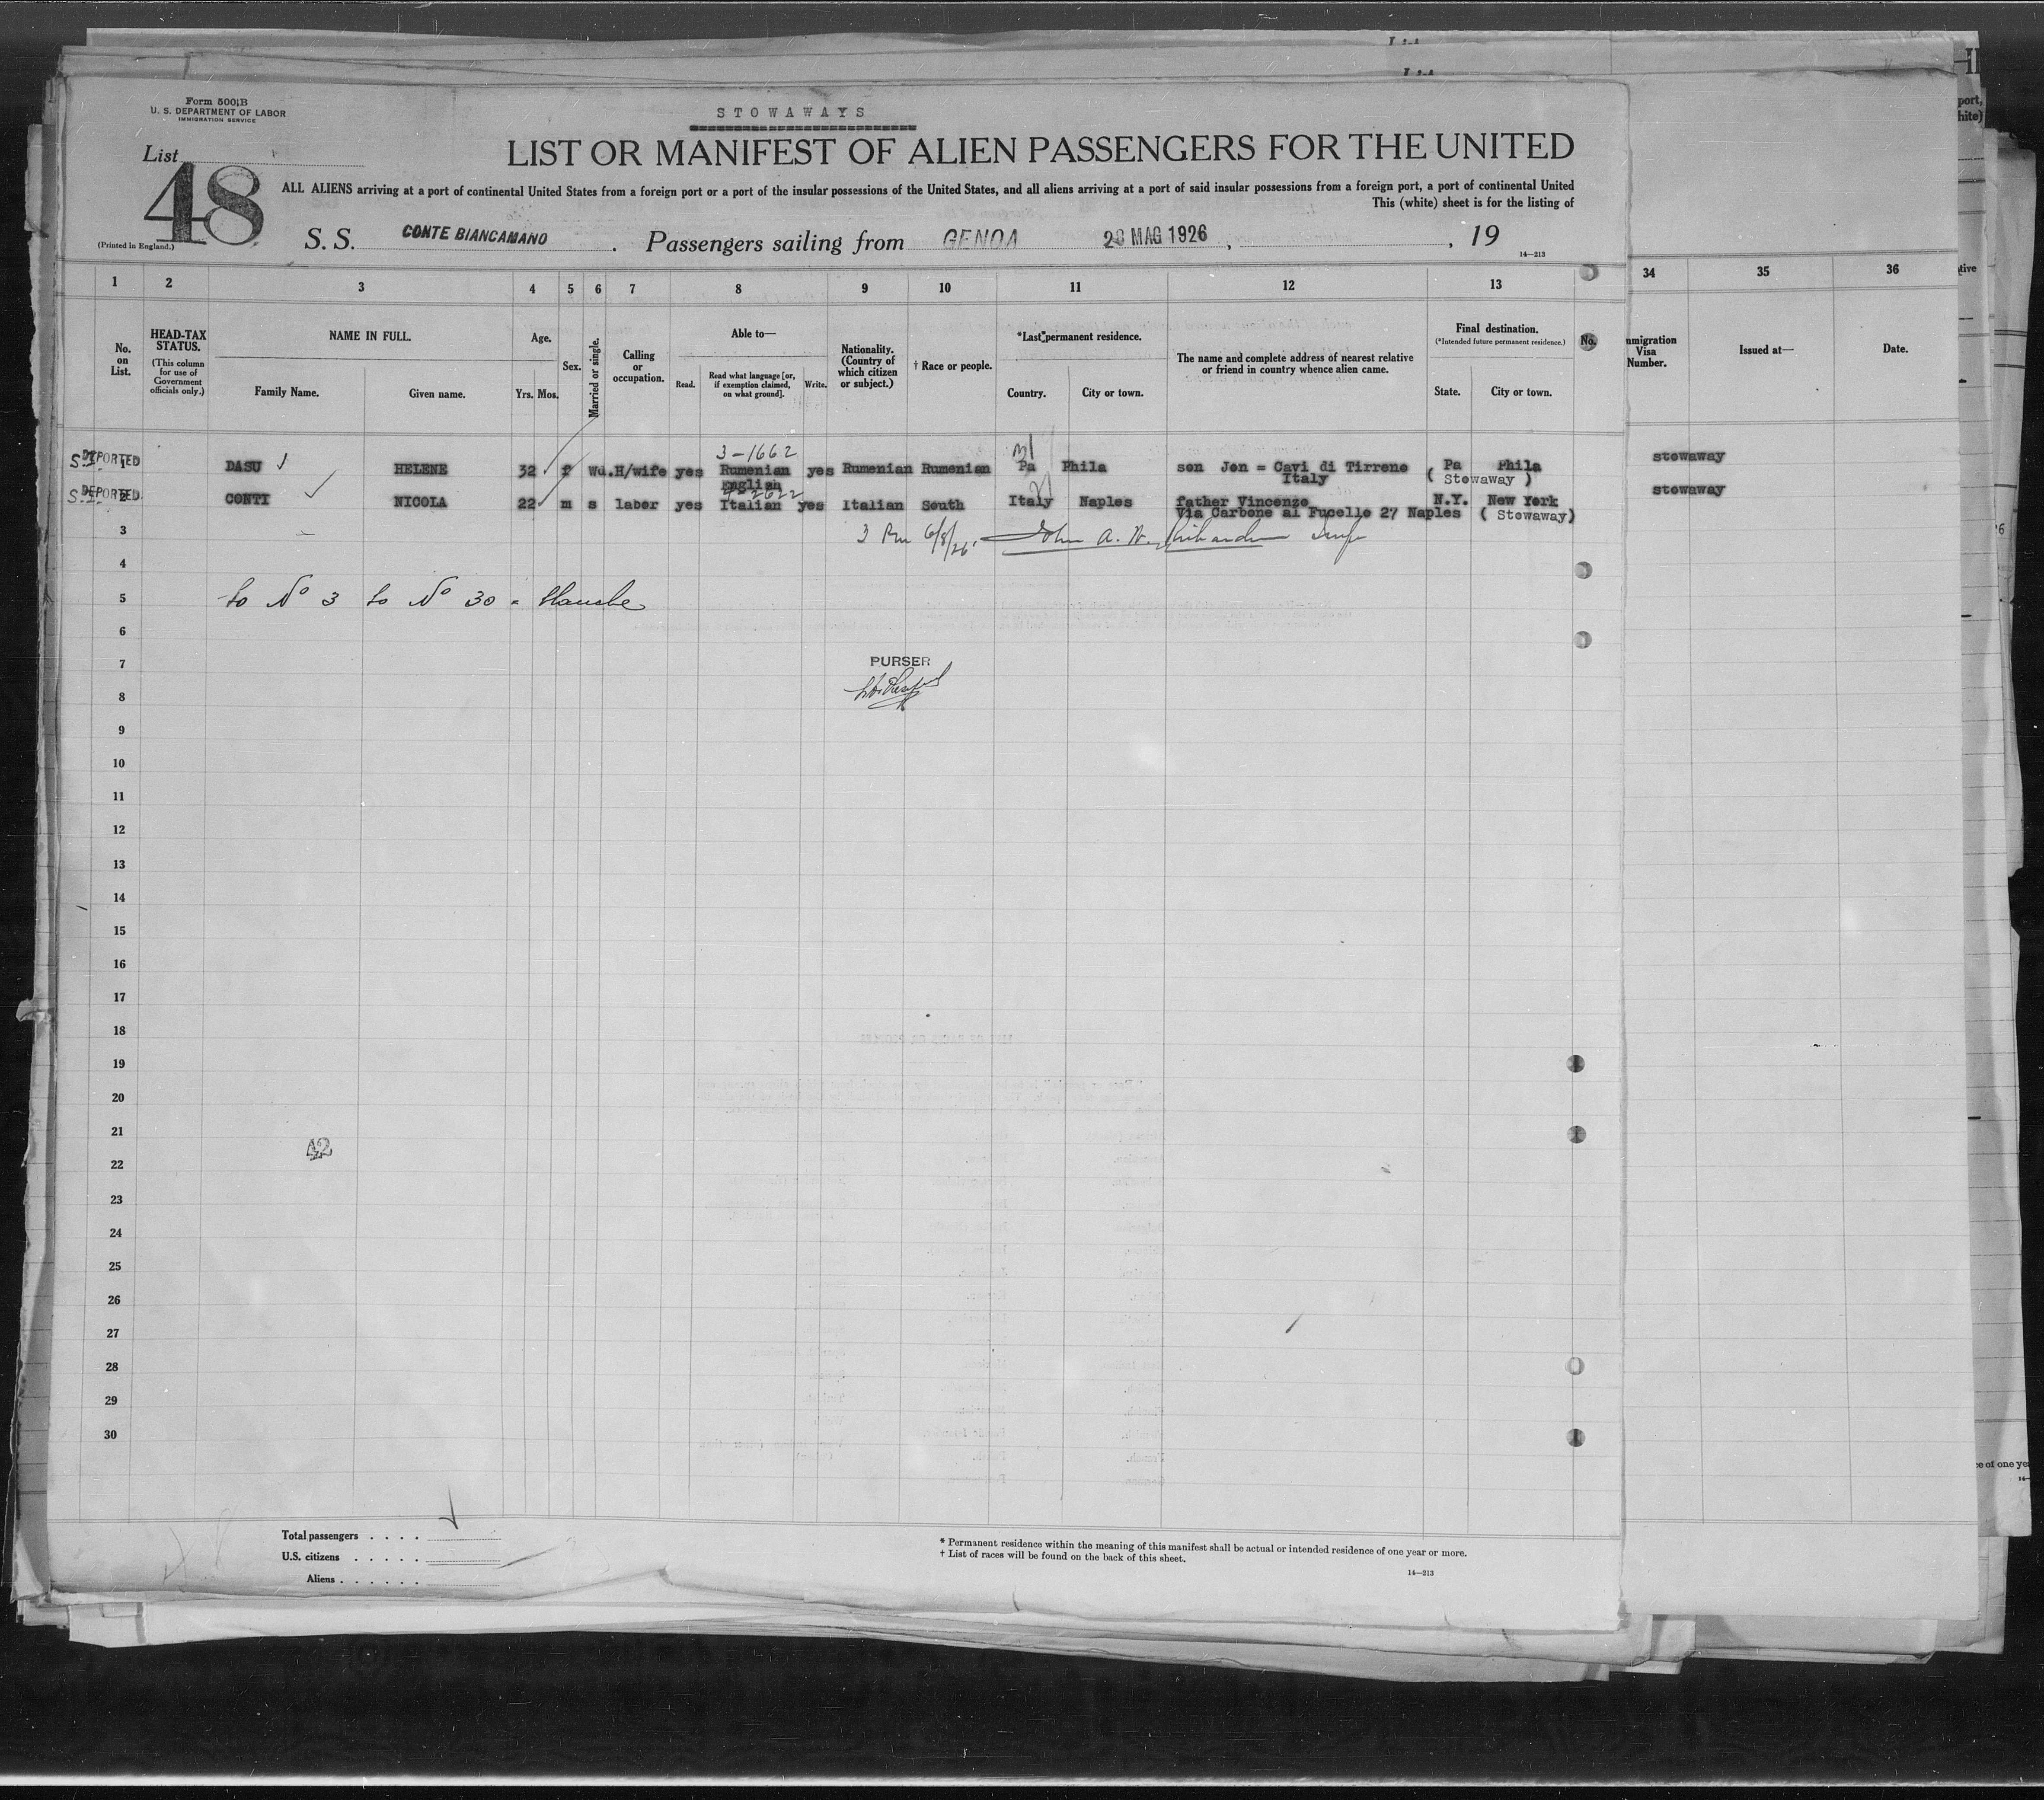 Form 500 B
U. S. DEPARTMENT OF LABOR
IMMIGRATION SERVICE
STOWAWAYS
List
48
(Printed in England.)
LIST OR MANIFEST OF ALIEN PASSENGERS FOR THE UNITED
ALL ALIENS arriving at a port of continental United States from a foreign port or a port of the insular possessions of the United States, and all aliens arriving at a port of said insular possessions from a foreign port, a port of continental United
This (white) sheet is for the listing of
S. S. CONTE BIANCAMANO . Passengers sailing from GENOA MAG 1926 , , 19
14—213
1 2 3 4 5 6 7 8 9 10 11 12 13 34 35 36
No. on List.
HEAD-TAX STATUS. (This column for use of Government officials only.)
NAME IN FULL.
Family Name. Given name.
Age.
Yrs. Mos.
Sex.
Married or single.
Calling or occupation.
Able to—
Read. Read what language [or, if exemption claimed, on what ground]. Write.
Nationality. (Country of which citizen or subject.)
† Race or people.
*Last permanent residence.
Country. City or town.
The name and complete address of nearest relative or friend in country whence alien came.
Final destination.
(*Intended future permanent residence.)
State. City or town.
No.
mmigration Visa Number.
Issued at—
Date.
3-1662
S.I. DEPORTED 1 DASU HELENE 32 f Wd. H/wife yes Rumenian yes Rumenian Rumenian Pa Phila son Jon = Cavi di Tirrene Pa Phila stowaway
English Italy ( Stowaway )
S.I. DEPORTED 2 CONTI NICOLA 22 m s labor yes Italian yes Italian South Italy Naples father Vincenzo N.Y. New York stowaway
Via Carbone al Fucello 27 Naples ( Stowaway)
3 6/8/26. John A. W.
3
4
5 to Nº 3 to Nº 30
6
7
PURSER
8
9
10
11
12
13
14
15
16
17
18
19
20
21
42
22
23
24
25
26
27
28
29
30
Total passengers . . . .
U.S. citizens . . . . .
Aliens . . . . . .
* Permanent residence within the meaning of this manifest shall be actual or intended residence of one year or more.
† List of races will be found on the back of this sheet.
14—213